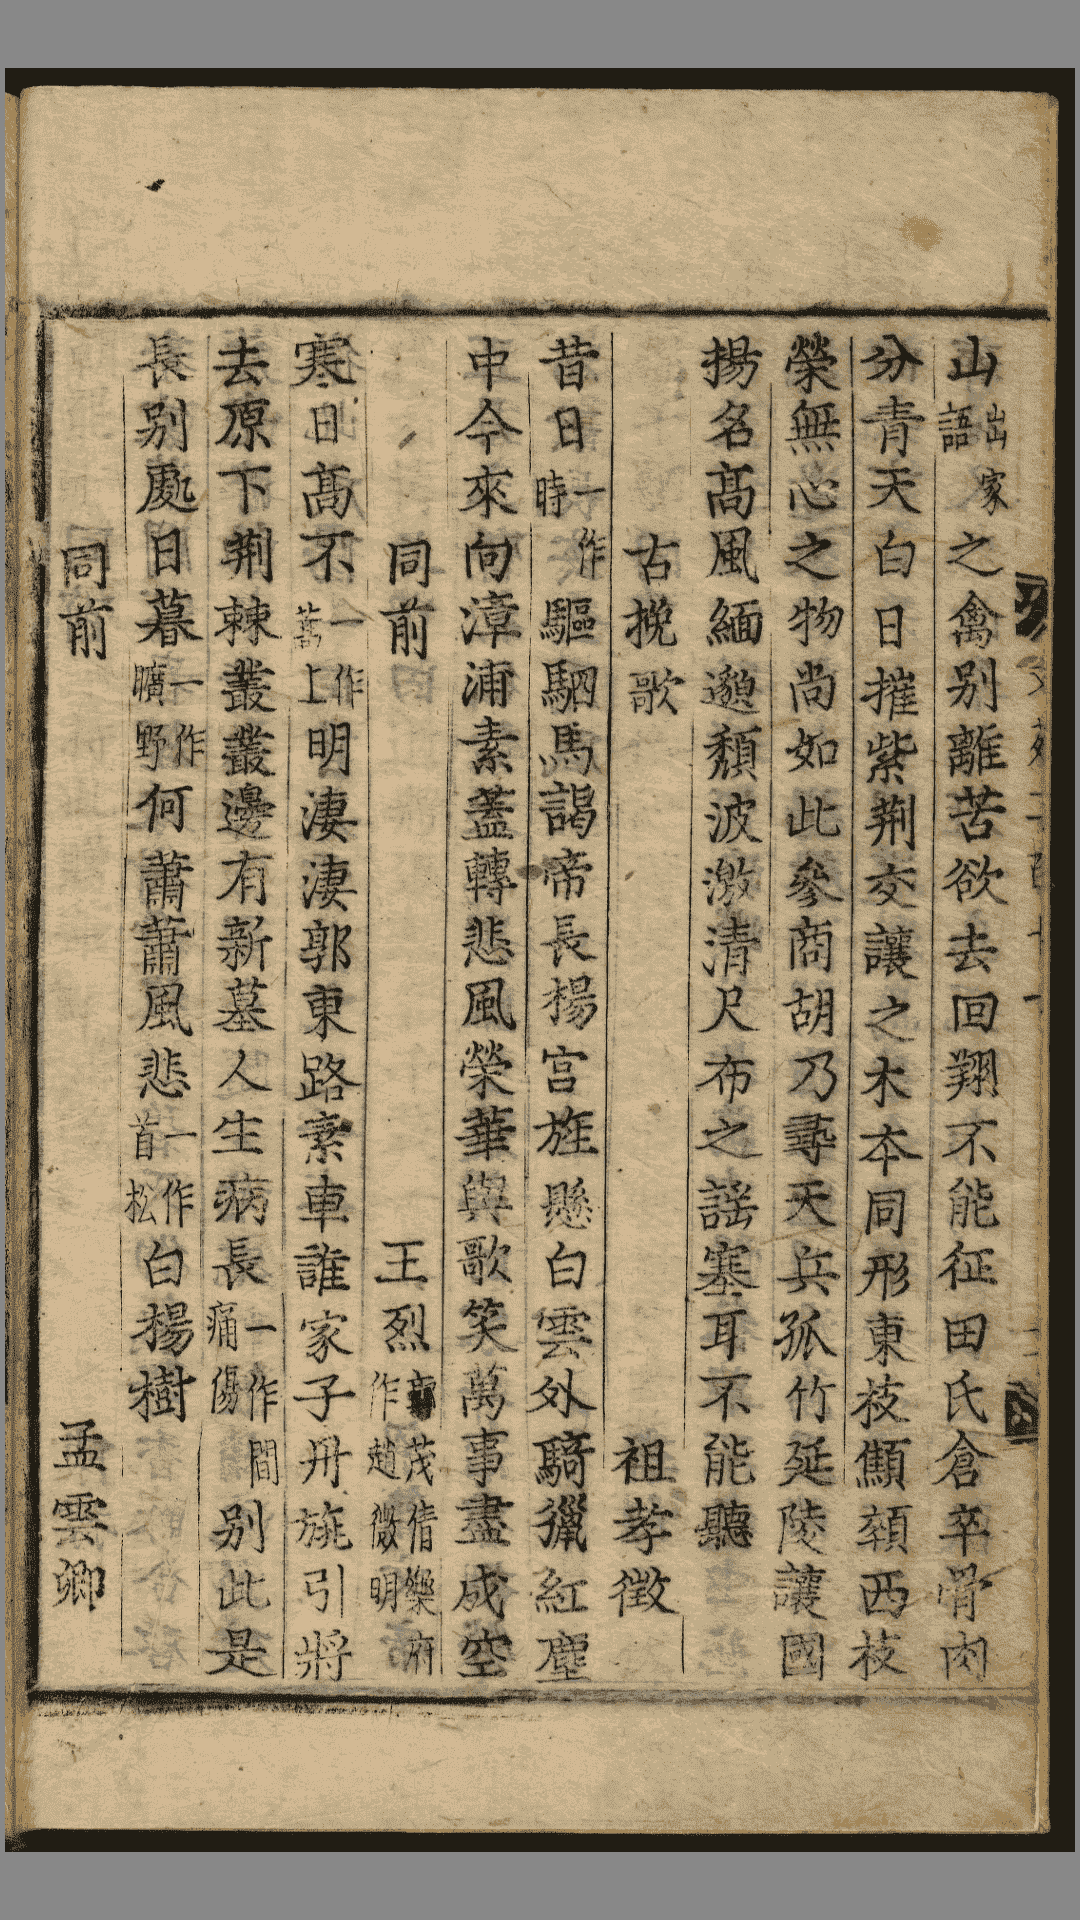 山出家語之禽别離苦欲去回翔不能征田氏倉卒骨肉
分青天白日摧紫荆交讓之木本同形東枝顦顇西枝
榮無心之物尚如此參商胡乃尋天兵孤竹延陵讓國
揚名高風緬邈頹波激清尺布之謡塞耳不能聽
古挽歌 祖孝徵
昔日一作時驅駟馬謁帝長楊宫旌懸白雲外騎獵紅塵
中今來向漳浦素蓋轉悲風榮華與歌笑萬事盡成空
同前 王烈郭茂倩樂府作趙微明
寒日高不一作蒿上明淒淒郭東路素車誰家子丹旐引將
去原下荆棘叢叢邊有新墓人生病長一作間痛傷别此是
長别處日暮一作曠野何蕭蕭風悲一作首松白楊樹
同前 孟雲卿